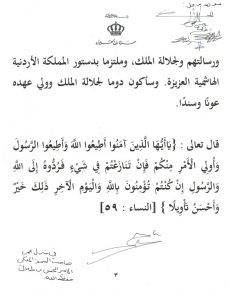 ورسالتهم ولجلالة الملك، وملتزما بدستور المملكة الأردنية
الهاشمية العزيزة. وسأكون دوما لجلالة الملك وولي عهده
عونًا وسندًا.
قال تعالى : {يَاأَيُّهَا الَّذِينَ آمَنُوا أَطِيعُوا اللَّهَ وَأَطِيعُوا الرَّسُولَ
وَأُولِي الْأَمْرِ مِنْكُمْ فَإِنْ تَنَازَعْتُمْ فِي شَيْءٍ فَرُدُّوهُ إِلَى اللَّهِ
وَالرَّسُولِ إِنْ كُنْتُمْ تُؤْمِنُونَ بِاللَّهِ وَالْيَوْمِ الْآخِرِ ذَلِكَ خَيْرٌ
وَأَحْسَنُ تَأْوِيلًا} [النساء : ٥٩]
في منزل سمو
٣